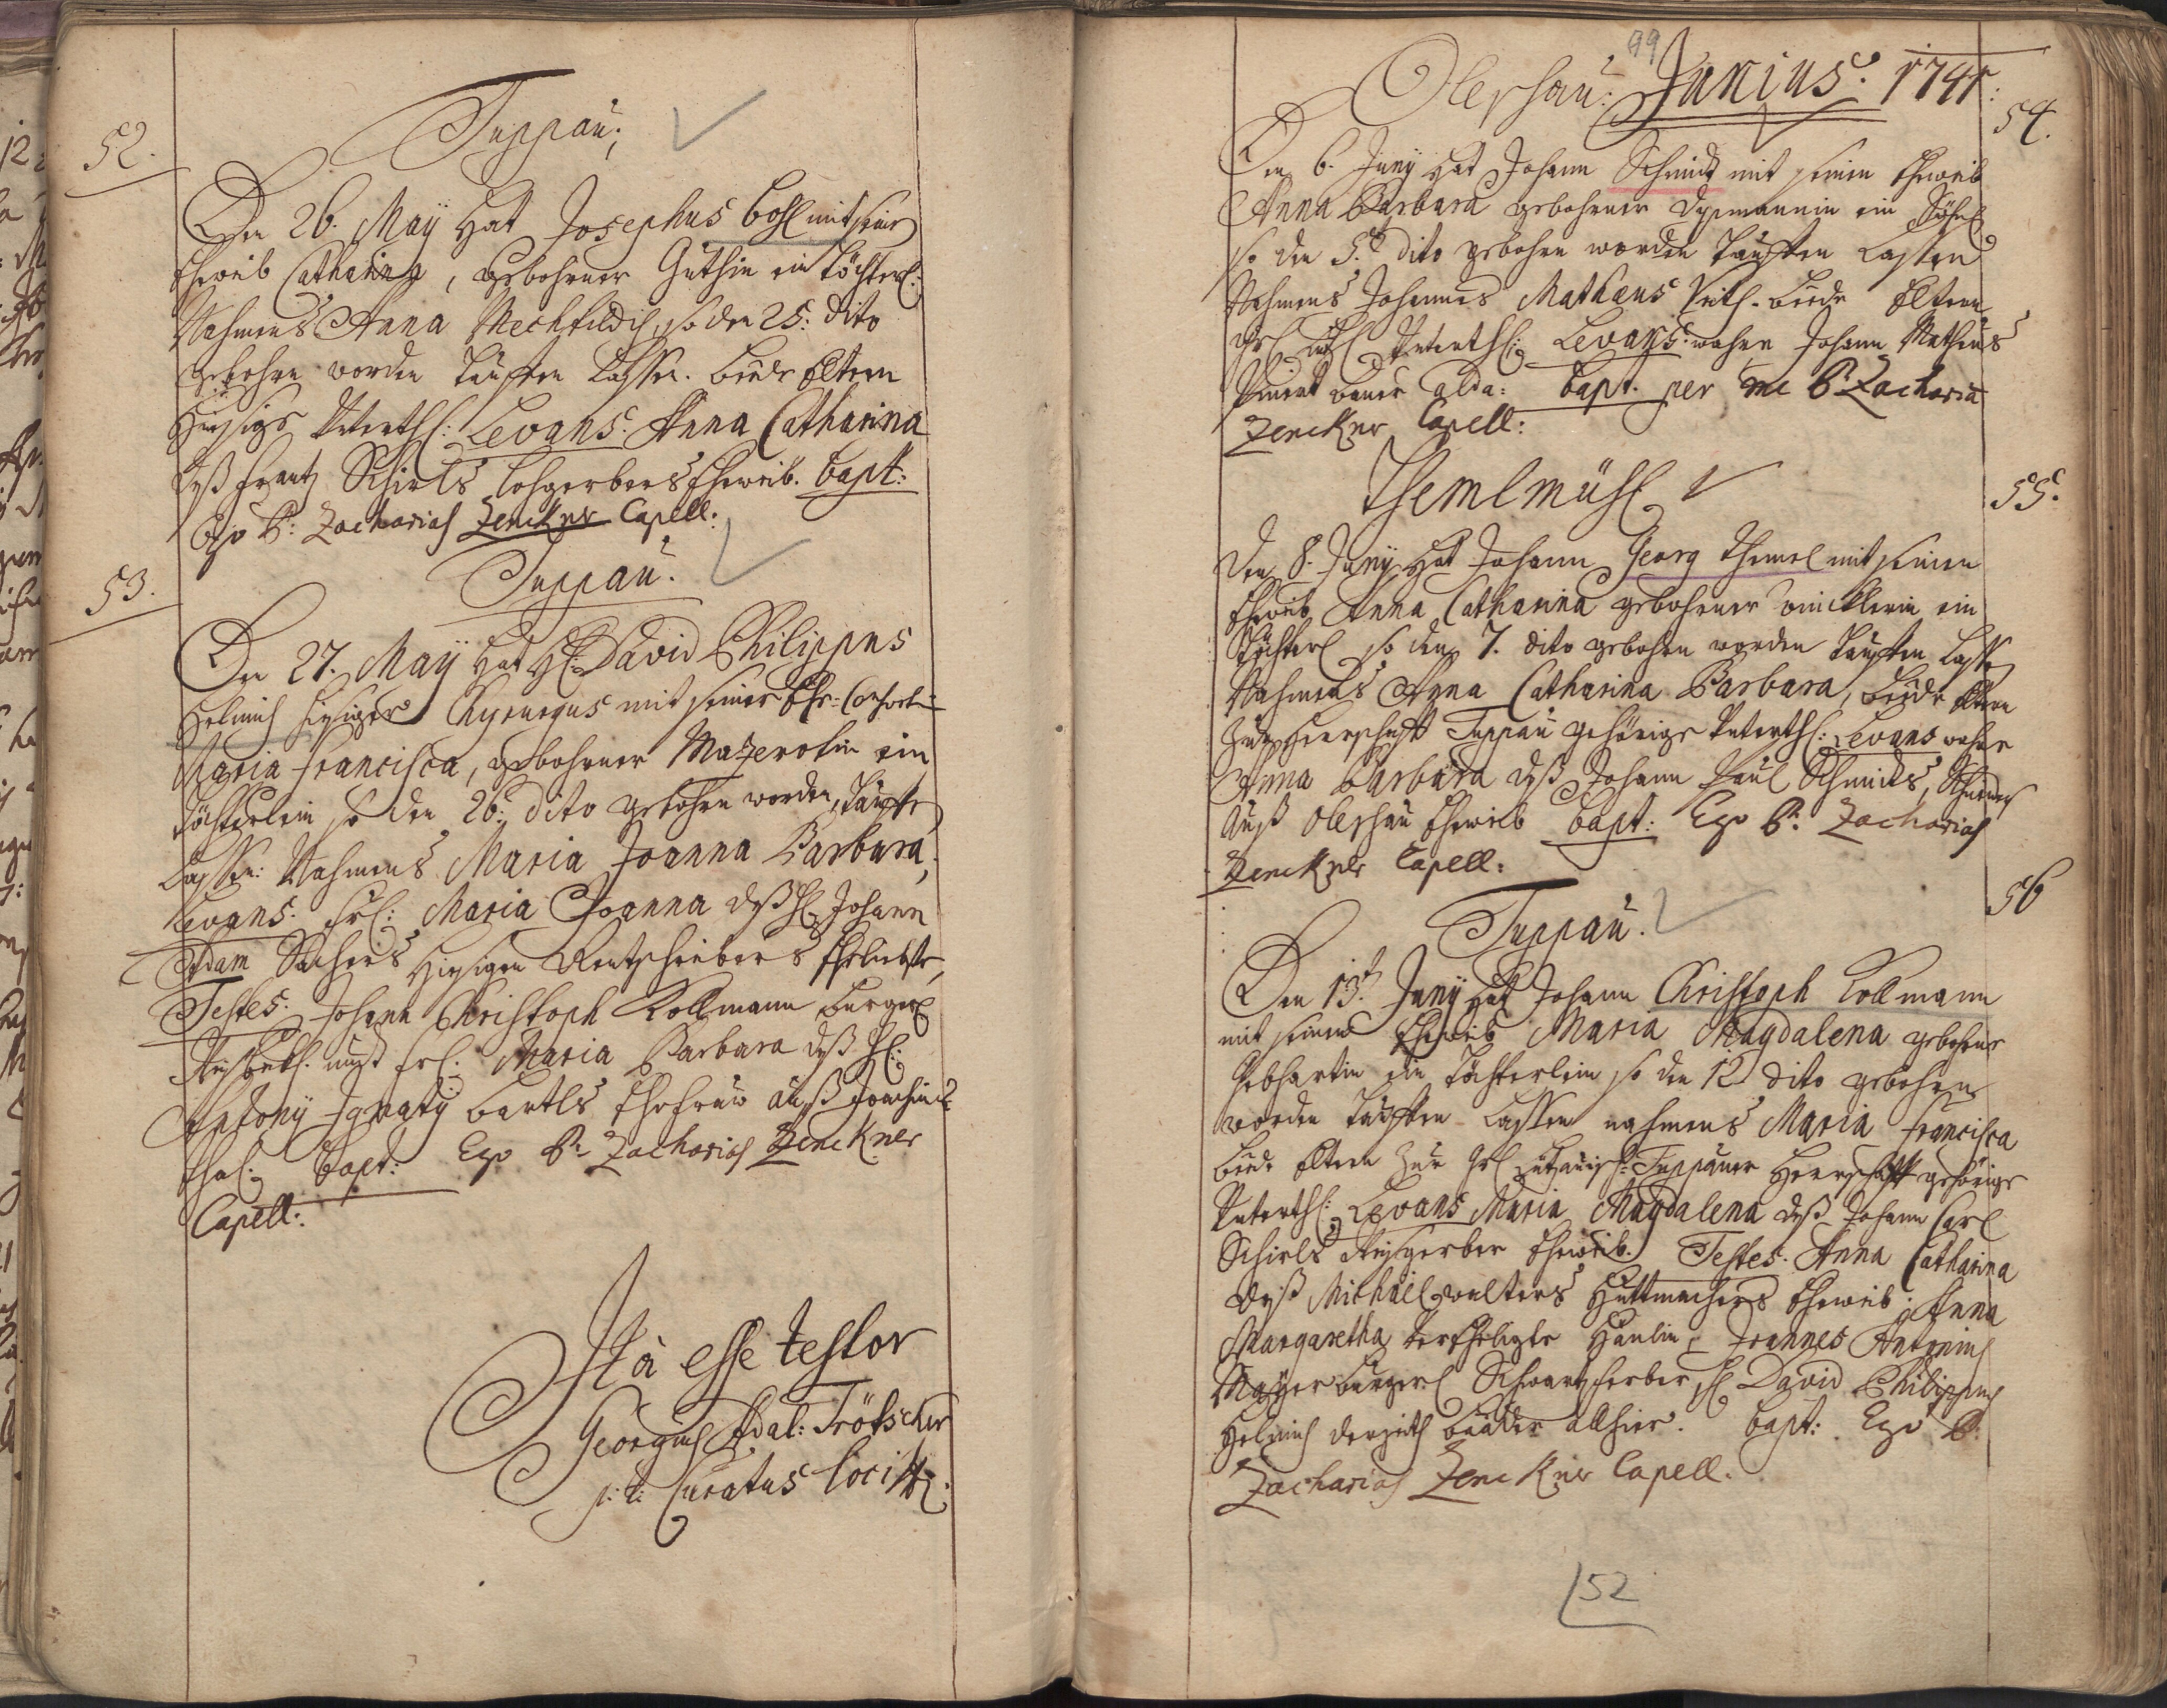 52.
Tuppau:
Den 26. May Hat Josephus Bohl mit seine
Eheweib Catharina, gebohrner Guthin ein Töchterl:
Nahmens Anna Mechtildis, so den 25: dito
gebohrn worden Tauffen Lassen. beide Eltern
Hiesige Unterth: Levans: Anna Catharina
deß Frantz Schirls Lohgerbers Eheweib. bapt:
Ego P: Zacharias Zenckner Capell:
53.
Tuppau.
Den 27. May Hat H: David Philippus
Helmich hiesiger mit seiner Ehe: Consortin
Maria Francisca, gebohrner Mazerotin ein
Töchterlein so den 26: dito gebohrn worden, Tauffen
Lassen: Nahmens Maria Joanna Barbara,
Levans: Fr: Maria Joanna deß H: Johann
Adam Sachers Hiesigen Rentschreibers Eheliebste,
Testes: Johann Christoph Kollmann burgerl
undt Fr: Maria Barbara deß H:
Antony Ignaty bartls Ehefrau auß Joachims
thal: bapt: Ego P: Zacharias Zenckner
Capell:
Ità esse testor
Georgius Adal: Trötscher
p: t: Curatus loci
99
Oleschau: Junius: 1741:
54.
Den 6. Juny Hat Johann Schmidt mit seinem Eheweib
Anna Barbara gebohrner ein Söhnl
so den 5. dito gebohrn worden Tauffen Lassen
Nahmens Johannes Mathæus beede Eltern
Unterth: Levans: wahre Johann Matheus
bauer alda: bapt. per me P. Zacharia
Zenckner Capell:
Themlmühl
55.
Den 8. Juny Hat Johann Georg Themel mit seinem
Eheweib Anna Catharina gebohrner Wincklerin ein
Töchterl so den 7. dito gebohrn worden Tauffen Lassen
Nahmens Anna Catharina Barbara, beide Eltern
Zur Herrschafft Tuppau gehörige Unterth: Levans wahre
Anna Barbara deß Johann Paul Schmidts,
Auß Oleschau Eheweib bapt: Ego P: Zacharias
Zenckner Capell:
56
Tuppau.
Den 13. Juny Hat Johann Christoph Kollmann
mit seinem Eheweib Maria Magdalena gebohrne
Gebhartin ein Töchterlein so den 12 dito gebohrn
worden Tauffen Lassen nahmens Maria Francisca
beede Eltern Zur Tuppauer Herrschafft gehörige
Unterth: Levans Maria Magdalena deß Johann Carl
Schirls Eheweib. Testes: Anna Catharina
deß Michäel Walters Huttmachers Eheweib, Anna
Margaretha Verehligte Hänlin, Joannes Antonius
Mayer burgerl Schwartzferber, H: David Philippus
Helmich derzeith allhier. bapt: Ego P:
Zacharias Zenckner Capell.
52